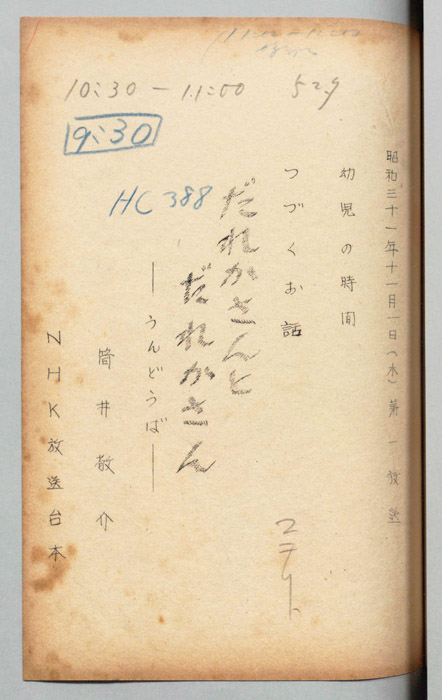 10:30 — 11:00
52.9
9:30
HC 388
昭和三十一年十一月一日(木) 第一放送
幼児の時間
つづくお話
だれかさんと
だれかさん
― うんどうば ―
筒井敬介
NHK放送台本